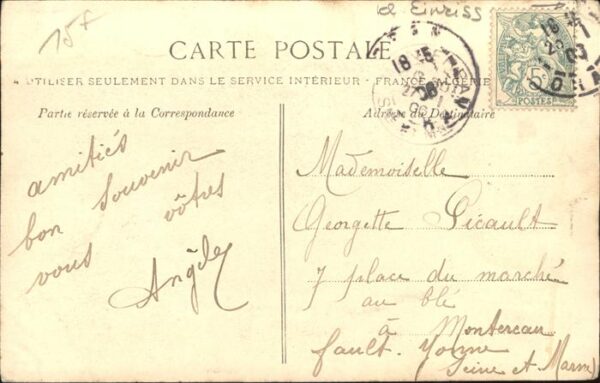 15f
kl. Einriss
CARTE POSTALE
A UTILISER SEULEMENT DANS LE SERVICE INTÉRIEUR - FRANCE, ALGÉRIE
Partie réservée à la Correspondance
Adresse du Destinataire
amitiés
bon souvenir
vous vôtres
Angèle
Mademoiselle
Georgette Picault
7 place du marché
au blé
à Montereau
fault-Yonne
Seine et Marne
5c
POSTES